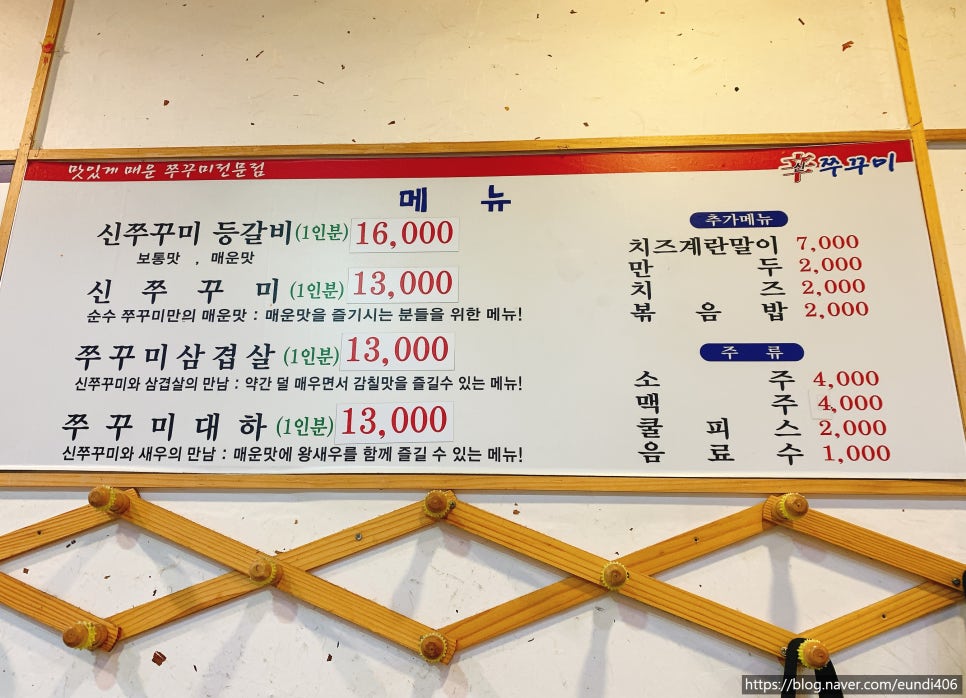 맛있게 매운 쭈꾸미전문점
신쭈꾸미
메 뉴
신쭈꾸미 등갈비(1인분) 16,000
보통맛 , 매운맛
신 쭈 꾸 미 (1인분) 13,000
순수 쭈꾸미만의 매운맛 : 매운맛을 즐기시는 분들을 위한 메뉴!
쭈꾸미삼겹살 (1인분) 13,000
신쭈꾸미와 삼겹살의 만남 : 약간 덜 매우면서 감칠맛을 즐길수 있는 메뉴!
쭈꾸미대하 (1인분) 13,000
신쭈꾸미와 새우의 만남 : 매운맛에 왕새우를 함께 즐길 수 있는 메뉴!
추가메뉴
치즈계란말이 7,000
만 두 2,000
치 즈 2,000
볶 음 밥 2,000
주 류
소 주 4,000
맥 주 4,000
쿨 피 스 2,000
음 료 수 1,000
https://blog.naver.com/eundi406